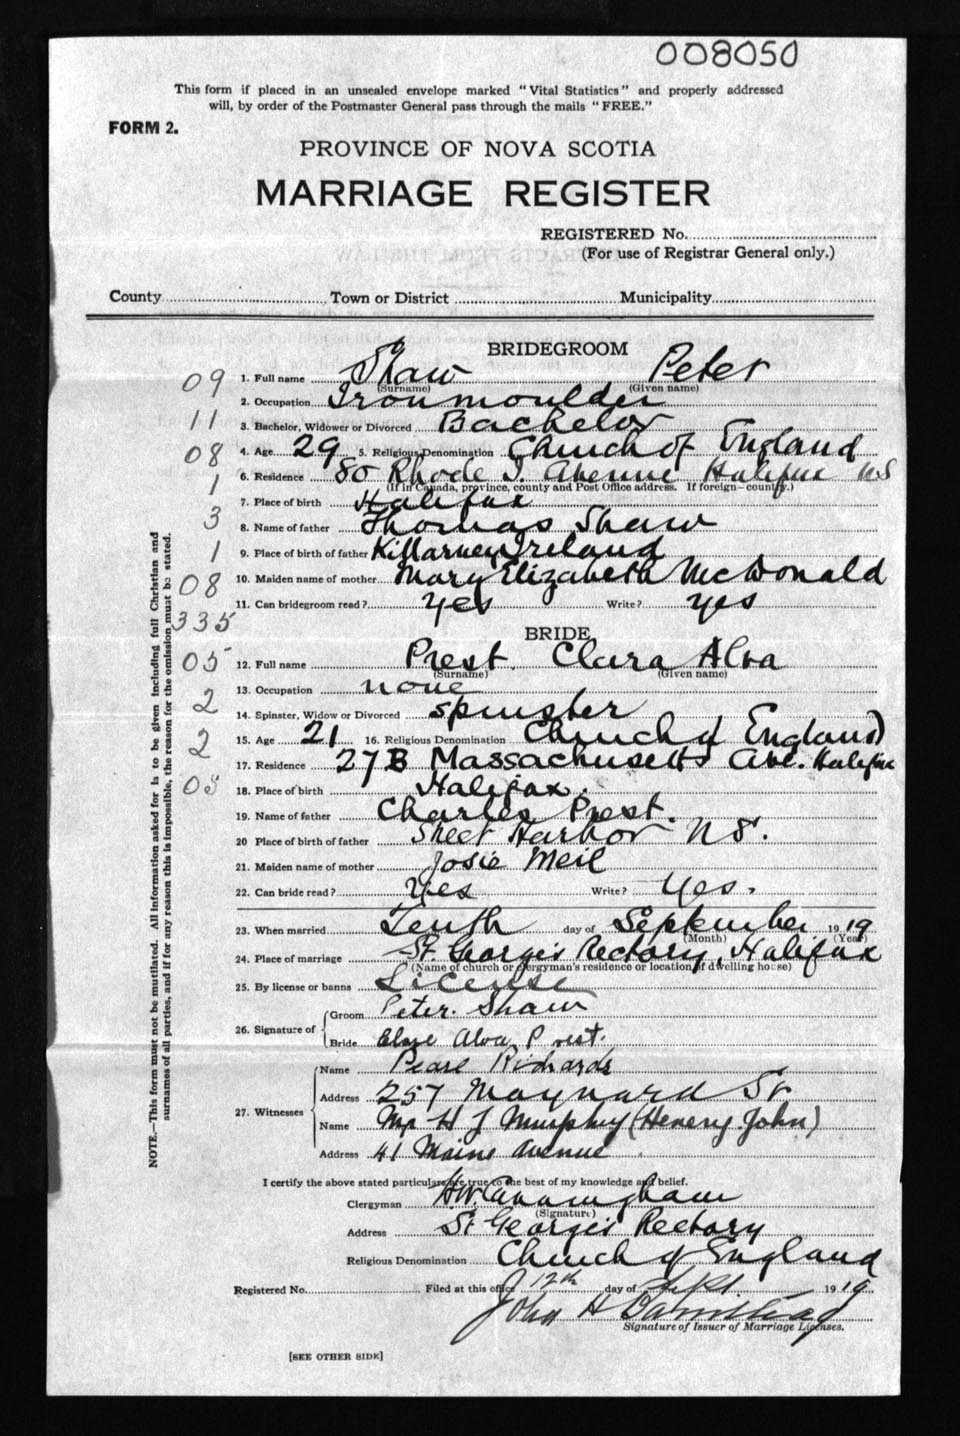 008050
This form if placed in an unsealed envelope marked "Vital Statistics" and properly addressed
will, by order of the Postmaster General pass through the mails "FREE."
FORM 2.
PROVINCE OF NOVA SCOTIA
MARRIAGE REGISTER
REGISTERED No.
(For use of Registrar General only.)
County Town or District Municipality
BRIDEGROOM
09 1. Full name Shaw Peter
(Surname) (Given name)
2. Occupation Ironmoulder
11 3. Bachelor, Widower or Divorced Bachelor
08 4. Age 29 5. Religious Denomination Church of England
6. Residence 80 Rhode I. Avenue Halifax NS
(If in Canada, province, county and Post Office address. If foreign—country.)
1 7. Place of birth Halifax
3 8. Name of father Thomas Shaw
1 9. Place of birth of father Killarney Ireland
08 10. Maiden name of mother Mary Elizabeth McDonald
11. Can bridegroom read? yes Write? yes
335
BRIDE
05 12. Full name Prest. Clara Alva
(Surname) (Given name)
13. Occupation none
2 14. Spinster, Widow or Divorced spinster
2 15. Age 21 16. Religious Denomination Church of England
17. Residence 27B Massachusetts Ave. Halifax
05 18. Place of birth Halifax.
19. Name of father Charles Prest.
20 Place of birth of father Sheet Harbor NS.
21. Maiden name of mother Josie Meil
22. Can bride read? Yes Write? Yes.
23. When married Tenth day of September 1919
(Month) (Year)
24. Place of marriage St. George's Rectory, Halifax
(Name of church or clergyman's residence or location of dwelling house)
25. By license or banns License
26. Signature of Groom Peter. Shaw
Bride Alva Prest.
27. Witnesses Name Pearl Richards
Address 257 Maynard St
Name Mr H J Murphy (Henery John)
Address 41 Mains Avenue
I certify the above stated particulars are true to the best of my knowledge and belief.
Clergyman H.W. Cunningham
(Signature)
Address St George's Rectory
Religious Denomination Church of England
Registered No. Filed at this office 12th day of Sept 1919
John H Barnstead
Signature of Issuer of Marriage Licenses.
[SEE OTHER SIDE]
NOTE.—This form must not be mutilated. All information asked for is to be given including full Christian and
surnames of all parties, and if for any reason this is impossible, the reason for the omission must be stated.